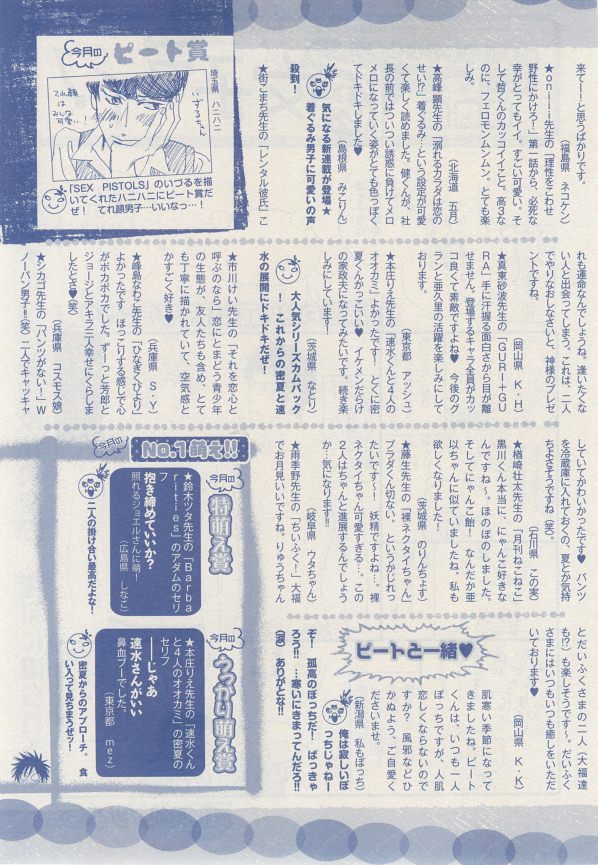 今月の
ビート賞
埼玉県 ハニハニ
いづるちゃん
てれ顔
は
みんな
可愛い!
「SEX PISTOLS」のいづるを描
いてくれたハニハニにビート賞だ
ぜ! てれ顔男子…いいなっ…!
来てーーと思うばかりです。
(福島県 ネコケン)
★oniii先生の「理性をこわせ
野性にかけろ!」第一話から、必死な
幸がとってもイイ。すごい可愛い。そ
して哲くんのカッコイイこと。高3な
のに、フェロモンムンムン。とても楽
しみ。
(北海道 五月)
★高峰 顕先生の「溺れるカラダは恋の
せい!?」着ぐるみ…という設定が可愛
くて楽しく読めました。健くんが、社
長の前ではついつい誘惑に負けてメロ
メロになっていく姿がとても色っぽく
てドキドキしました♥
(島根県 みとりん)
気になる新連載が登場★
着ぐるみ男子に可愛いの声
殺到!
★街こまち先生の「レンタル彼氏」こ
れも運命なんでしょうね。逢いたくな
い人と出会ってしまう。これは、二人
でやりなおしなさいと、神様のプレゼ
ントですね。
(岡山県 K・H)
★真東砂波先生の「GURI+GU
RA」手に汗握る面白さから目が離
せません。登場するキャラ全員がカッ
コ良くて素敵ですよね♥ 今後のグ
ランと亜久里の活躍を楽しみにして
おります。
(東京都 アッシュ)
★本庄りえ先生の「速水くんと4人の
オオカミ」よかったです! とくに密
夏くんかっこいい♥ イケメンだらけ
の家政夫になってみたいです。続き楽
しみにしています!
(茨城県 なとり)
大人気シリーズカムバック
! これからの密夏と速
水の展開にドキドキだぜ!
★市川けい先生の「それを恋心と
呼ぶのなら」恋にとまどう青少年
の生態が、友人たちも含め、とて
も丁寧に描かれていて、空気感と
かすごく好き♥
(兵庫県 S・Y)
★峰島なわこ先生の「ひなぎくひより」
よかったです ほっこりする感じで心
がポカポカでした。ずーっと芳郎と
ジョージとアキラ三人幸せにくらしま
したとさ♥(笑)
(兵庫県 コスモス娘)
★シカゴ先生の「パンツがない!」W
ノーパン男子!!(笑)二人でキャッキャ
していてかわいかったです♥ パンツ
を冷蔵庫に入れておくの、夏とか気持
ちよさそうですね(笑)。
(石川県 この実)
★楢崎壮太先生の「月刊ねこねこ」
黒川くん本当に、にゃんこ好きな
んですね〜、ほのぼのしました。
そしてにゃんこ飴! なんだか亜
以ちゃんに似ていましたね。私も
欲しくなりました!
(茨城県 のりんちょす)
★藤生先生の「裸ネクタイちゃん」
ブラダくん切ない、というかじれっ
たいです〜! 妖精ですよね…。裸
ネクタイちゃん可愛すぎる…。この
2人はちゃんと進展するんでしょう
か…気になります!!
(岐阜県 ウタちゃん)
★雨季野先生の「ちいふく!」大福
でお月見いいですね。りゅうちゃん
とだいふくさまの二人(大福達
も!?)も楽しそうです〜。だいふく
さまにはいつもいつも癒しをいただ
いております♥
(岡山県 K・K)
ビートと一緒♥
肌寒い季節になって
きましたね。ビート
くんは、いつも一人
ぼっちですが、人肌
恋しくならないので
すか? 風邪などひ
かぬよう、ご自愛く
ださいませ。
(新潟県 私もぼっち)
俺は寂しいぼ
っちじゃねー
ぞ! 孤高のぼっちだ! ばっきゃ
ろうっ!! …寒いにきまってんだろ!!
(涙) ありがとな!!
今月の
No.1萌え!!
今月の
特萌え賞
★鈴木ツタ先生の「Barba
rities」のアダムのセリ
フ
抱き締めていいか?
照れるジョエルさんに萌!
(広島県 しなこ)
二人の掛け合い最高だよな!
今月の
うっかり萌え賞
★本庄りえ先生の「速水くん
と4人のオオカミ」の密夏の
セリフ
――じゃあ
速水さんがいい
鼻血ブーでした。
(東京都 mez)
密夏からのアプローチ。食
い入って見ちまうぜッ!